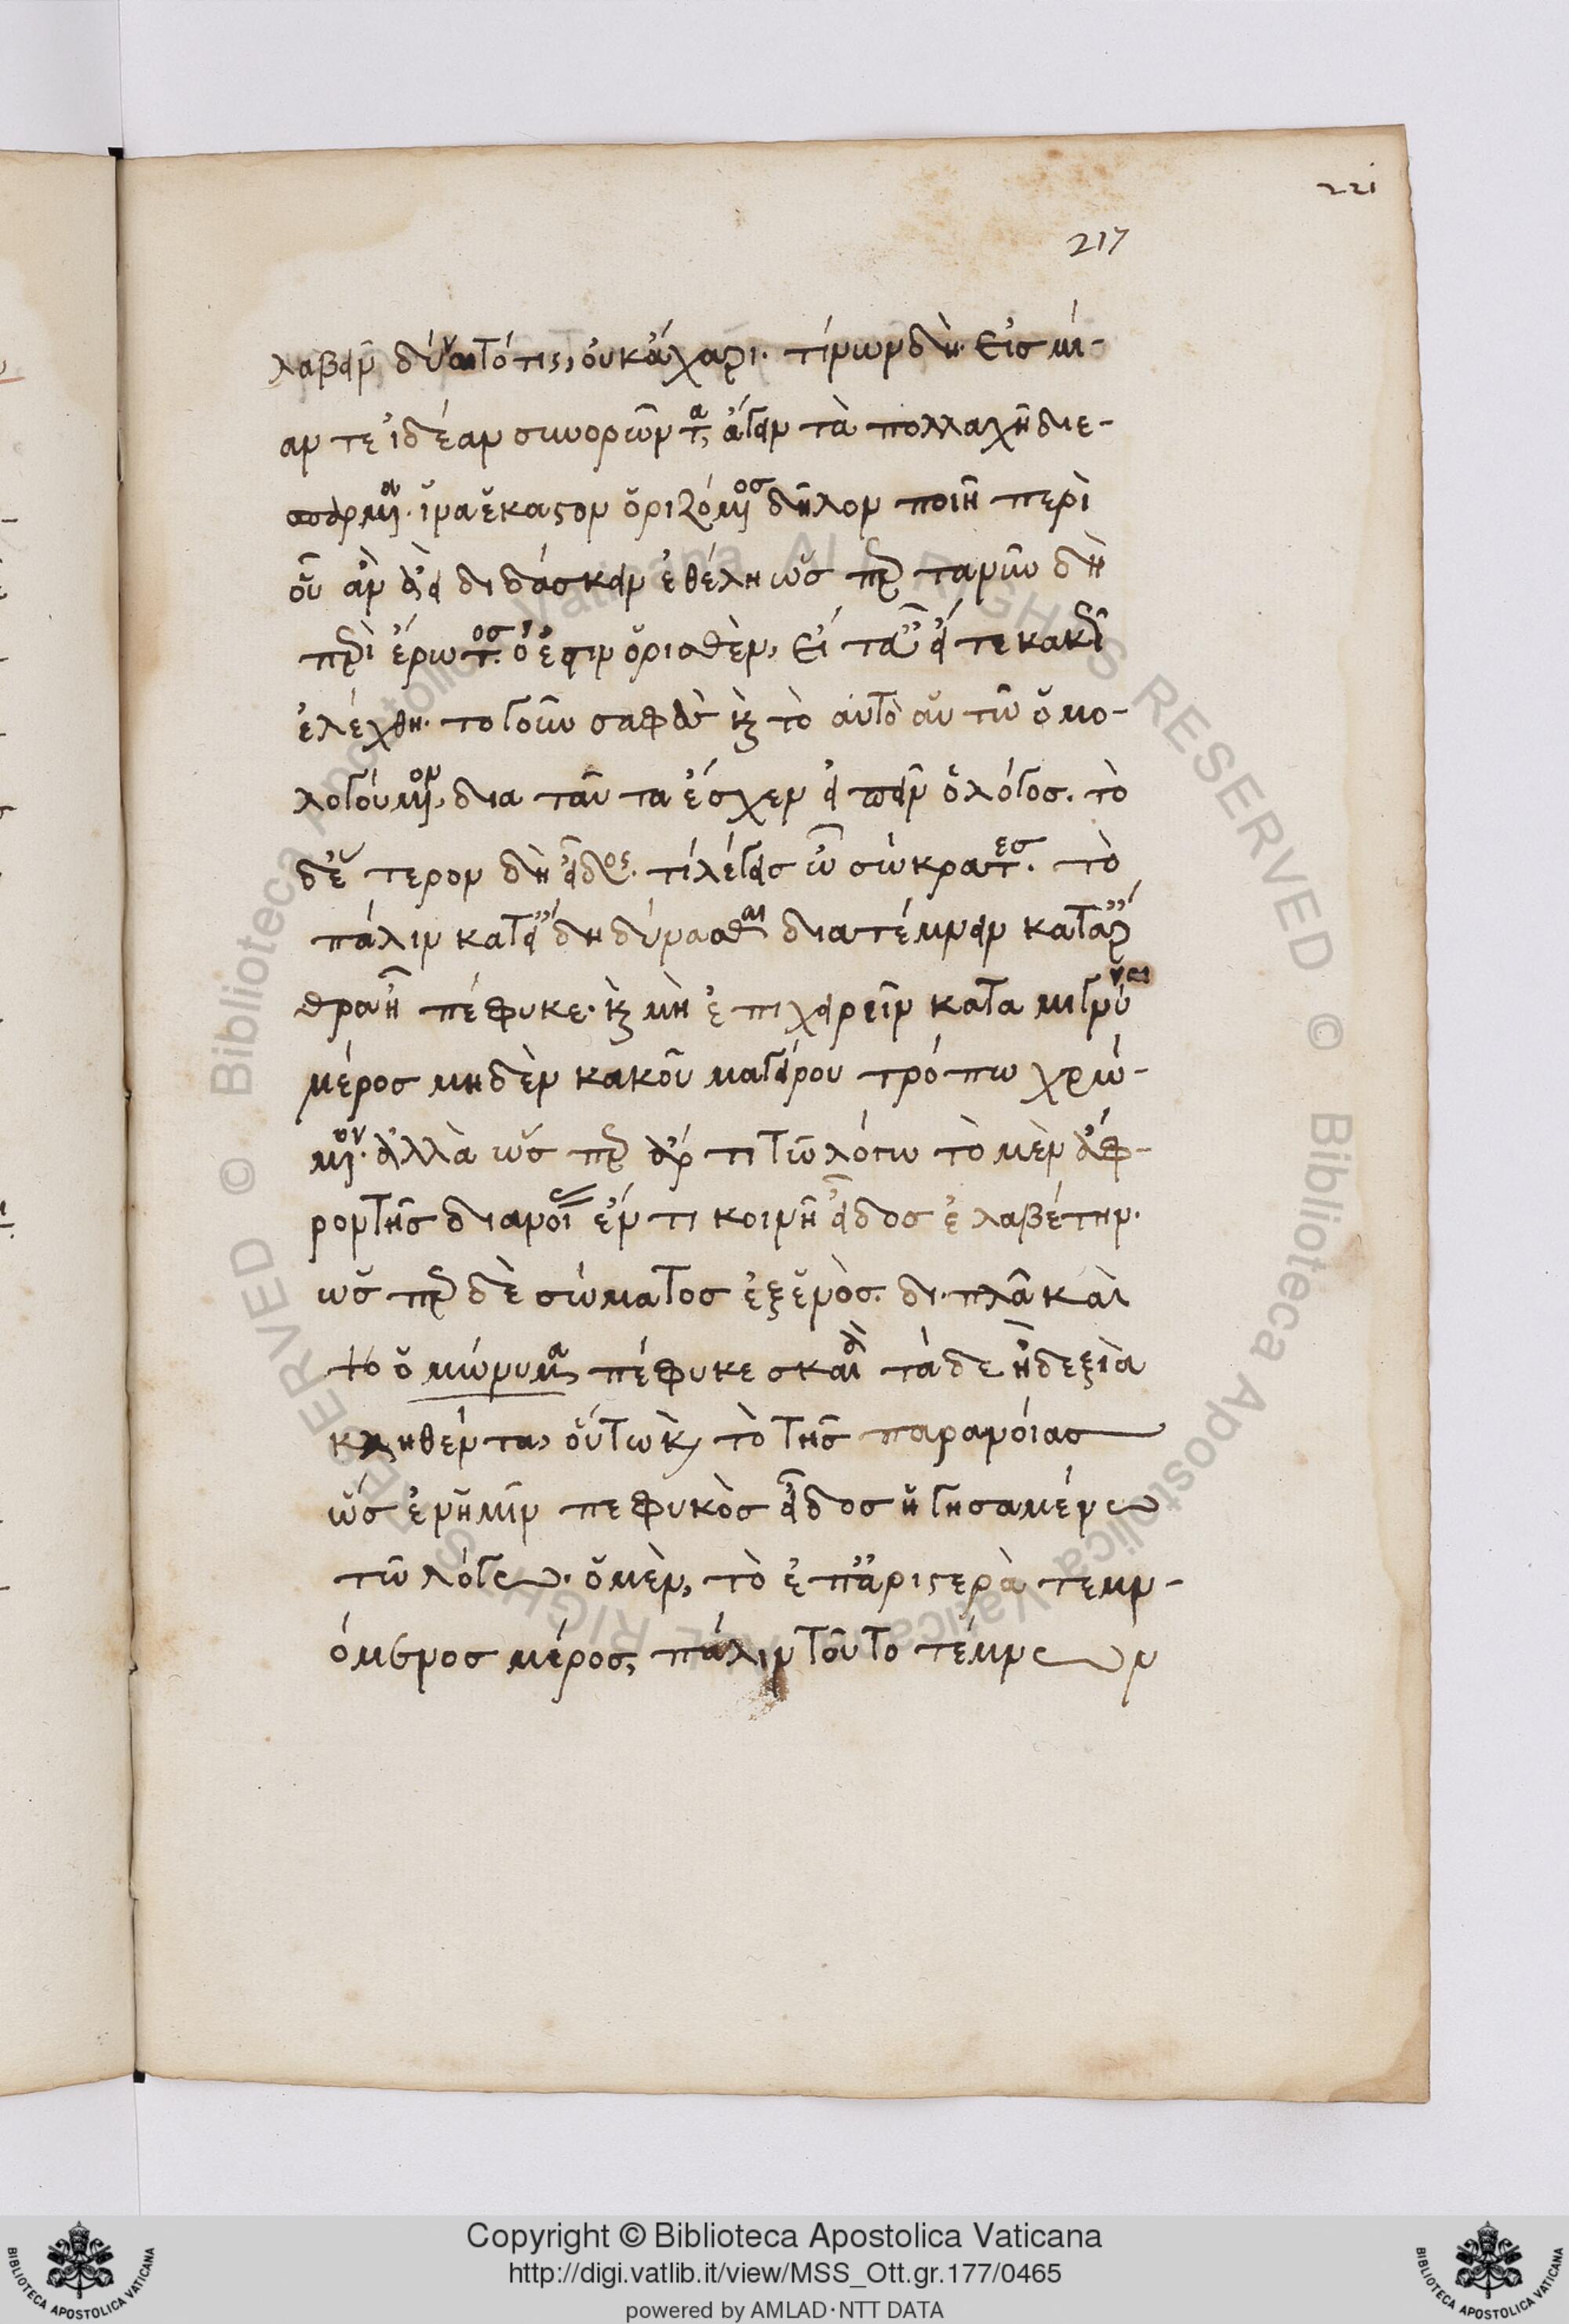 221
217
λαβεῖν δύναιτό τις, οὐκ ἄχαρι. τίνων δή. εἰς μί-
αν τε ἰδέαν συνορῶντα, ἄγειν τὰ πολλαχῆ διε-
σπαρμένα. ἵνα ἕκαστον ὁριζόμενος δῆλον ποιῆ περὶ
οὗ ἂν ἀεὶ διδάσκειν ἐθέλη ὥσπερ τανῦν δὴ
περὶ ἔρωτος. ὃ ἔστιν ὁρισθὲν, εἴτ' εὖ εἴτε κακῶς
ἐλέχθη. τὸ γοῦν σαφὲς καὶ τὸ αὐτὸ αὑτῶ ὁμο-
λογούμενον, δια ταῦτα ἔσχεν εἰπεῖν ὁ λόγος. τὸ
δεύτερον δὴ εἶδος. τί λέγεις ὦ σώκρατες. τὸ
πάλιν κατ' εἴδη δύνασθαι διατέμνειν κατ' ἄρ
θρα ἧ πέφυκε. καὶ μὴ ἐπιχειρεῖν καταγνύναι
μέρος μηδὲν κακοῦ μαγείρου τρόπω χρώ-
μενον. ἀλλὰ ὥσπερ ἄρτι τὼ λόγω τὸ μὲν ἄφ-
ρον τῆς διανοίας ἕν τι κοινῆ εἶδος ἐλαβέτην.
ὥσπερ δὲ σώματος ἐξ ἑνὸς. διπλᾶ καὶ
τὸ ὁμώνυμα, πέφυκε σκαιὰ τὰ δε ἢ δεξιὰ
κληθέντα, οὕτω καὶ τὸ τῆς παρανόιας
ὡς ἓν ἡμῖν πεφυκὸς εἶδος ἡγησαμένω
τὼ λόγω. ὁ μὲν, τὸ ἐπ' ἀριστερὰ τεμν-
όμενος μέρος, πάλιν τοῦτο τέμνων
Copyright © Biblioteca Apostolica Vaticana
http://digi.vatlib.it/view/MSS_Ott.gr.177/0465
powered by AMLAD·NTT DATA